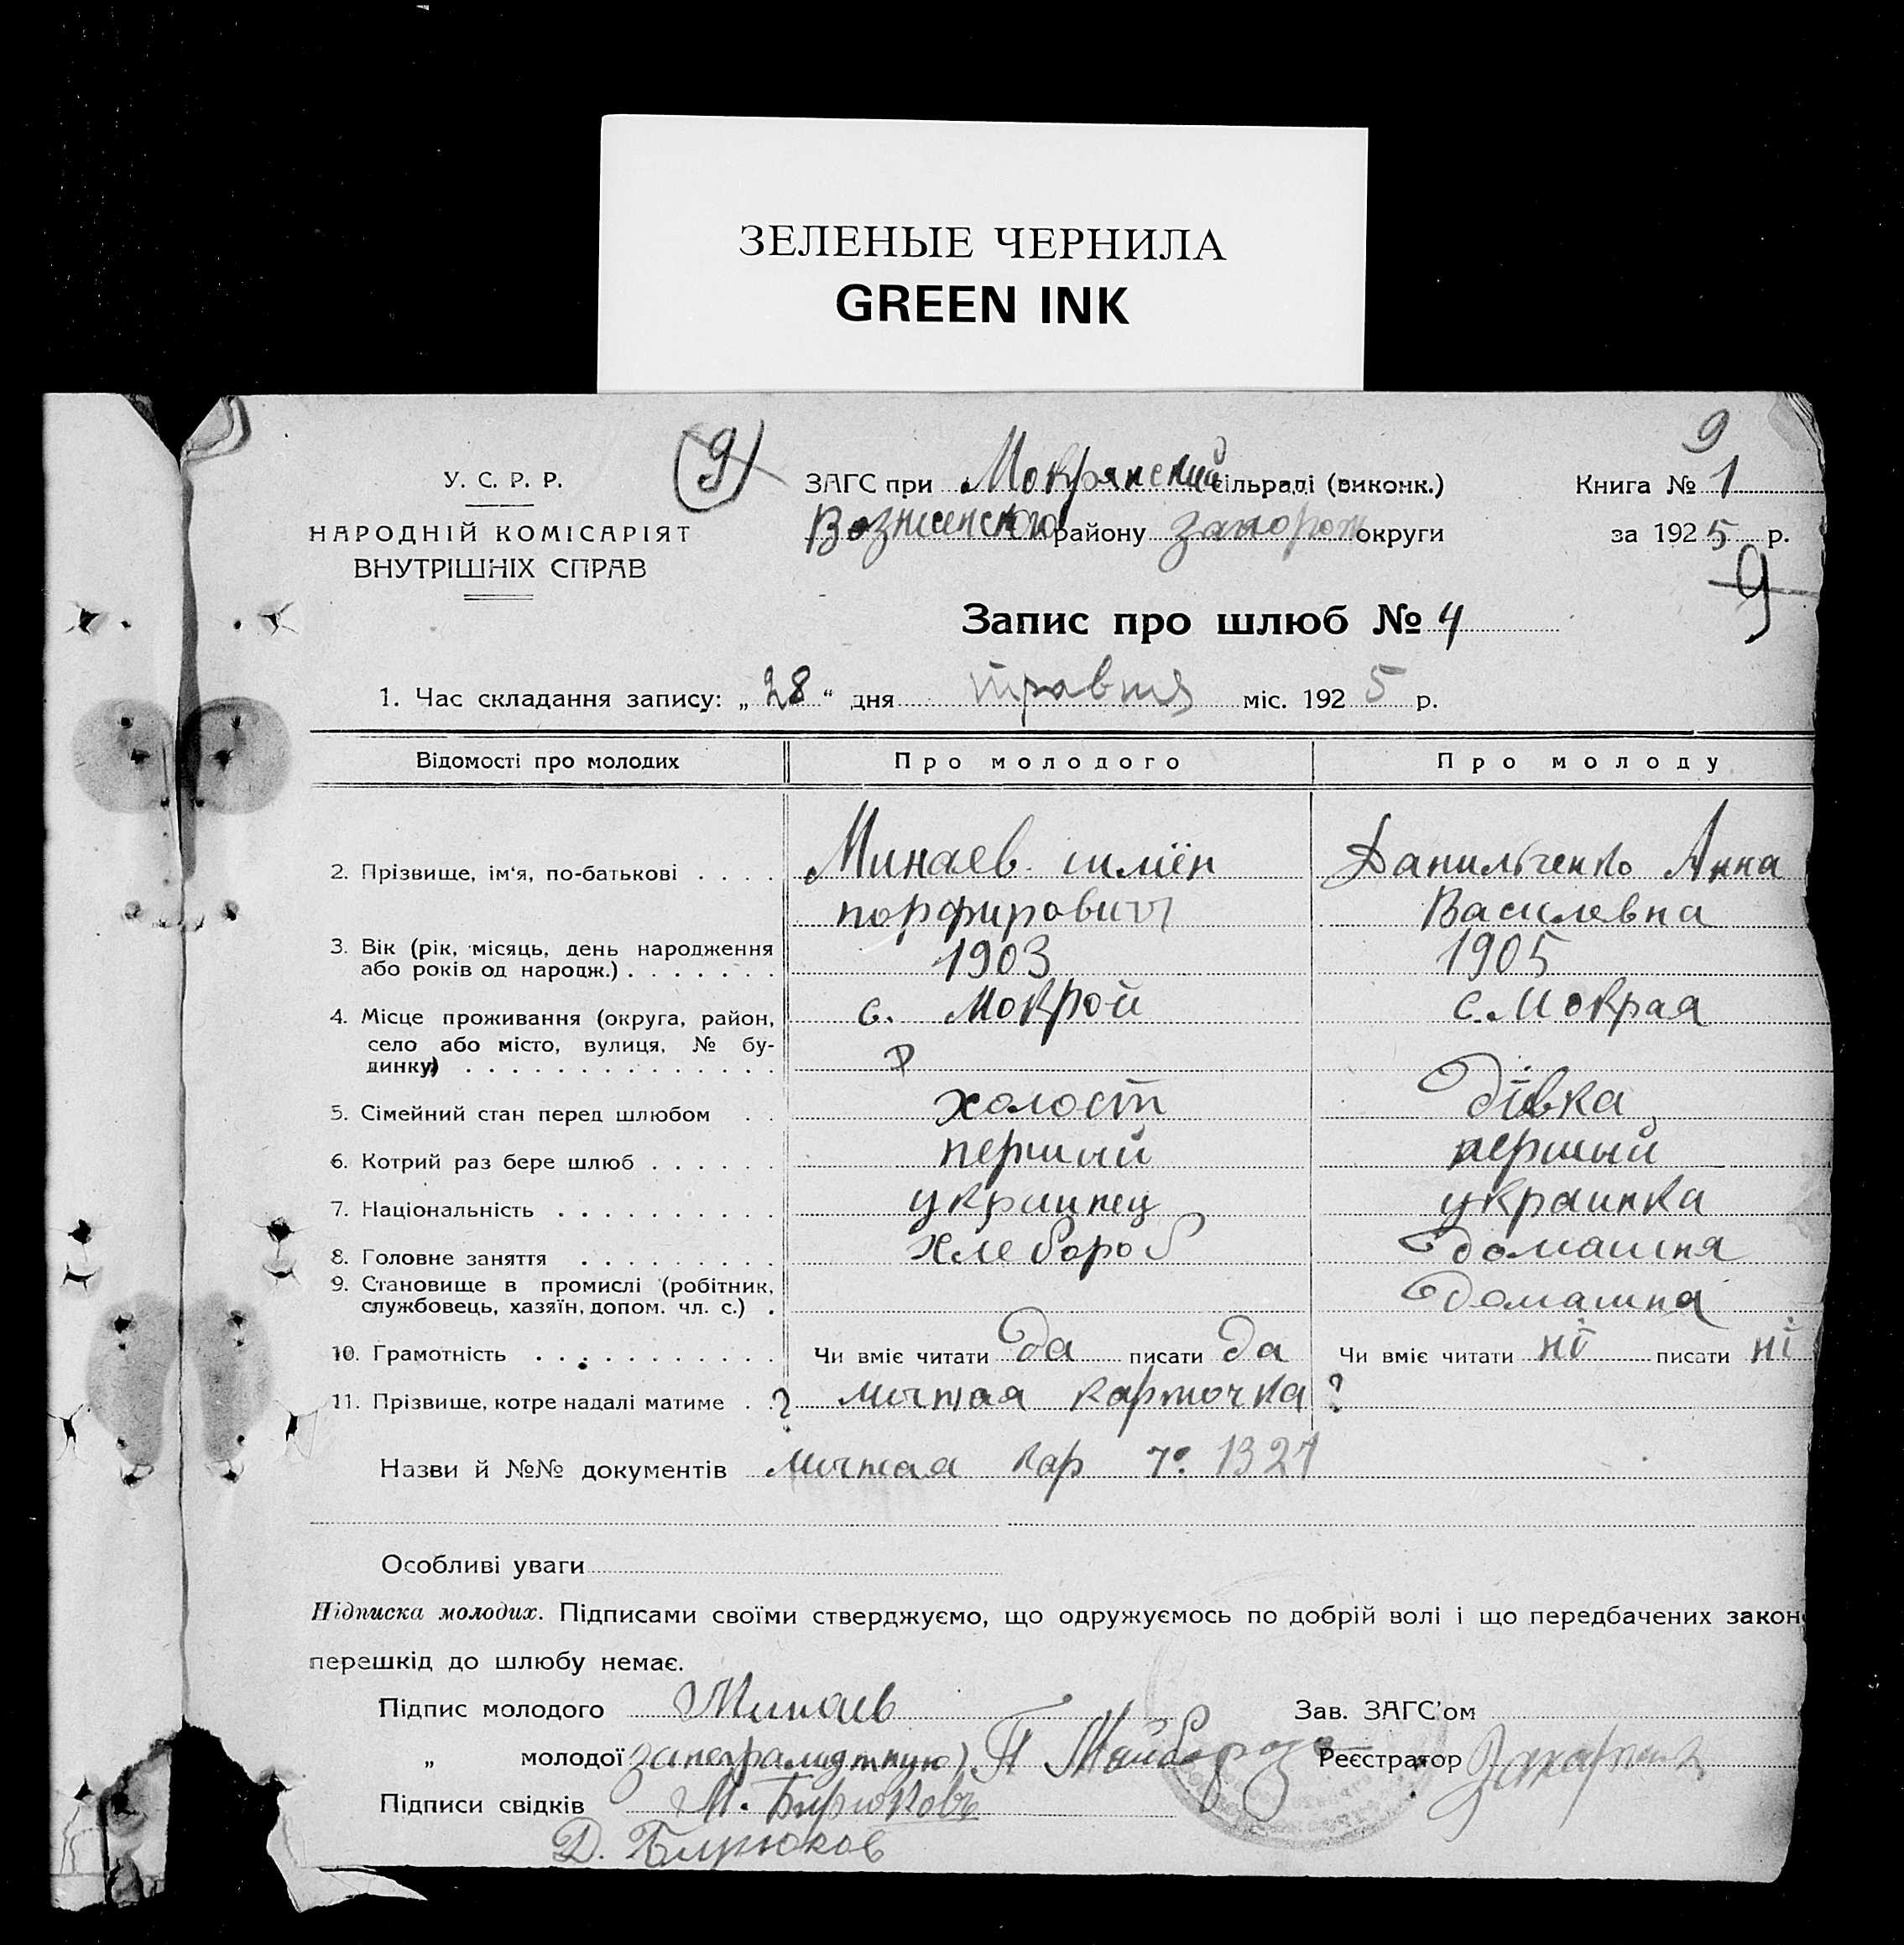 ЗЕЛЕНЫЕ ЧЕРНИЛА
GREEN INK
9
(9)
У. С. Р. Р.
НАРОДНІЙ КОМІСАРІЯТ
ВНУТРІШНІХ СПРАВ
ЗАГС при Мокрянский сільраді (виконк.)
Вознесенского району Запорож округи
Книга № 1
за 1925 р.
9
Запис про шлюб № 4
1. Час складання запису: „28“ дня травня міс. 1925 р.
Відомості про молодих Про молодого Про молоду
2. Прізвище, ім'я, по-батькові . . . . Минаев Данильченко Анна
порфирович Василевна
3. Вік (рік, місяць, день народження
або років од народж.) . . . . . . . 1903 1905
4. Місце проживання (округа, район, с. Мокрой с. Мокрая
село або місто, вулиця, № бу-
динку) . . . . . . . . . . . . . .
5. Сімейний стан перед шлюбом . . холост дівка
6. Котрий раз бере шлюб . . . . . . первий первый
7. Національність . . . . . . . . . . украинец украинка
8. Головне заняття . . . . . . . . . Хлебороб домашня
9. Становище в промислі (робітник,
службовець, хазяїн, допом. чл. с.) . домашна
10. Грамотність . . . . . . . . . . . Чи вміє читати да писати да Чи вміє читати ні писати ні
11. Прізвище, котре надалі матиме . ? личная карточка ?
Назви й №№ документів личная кар
Особливі уваги
Підписка молодих. Підписами своїми стверджуємо, що одружуємось по добрій волі і що передбачених закон
перешкід до шлюбу немає.
Підпис молодого Минаев Зав. ЗАГС'ом
„ молодої за неграмотную) П Майборода Реєстратор
Підписи свідків М. Бирюковъ
Д. Бирюков